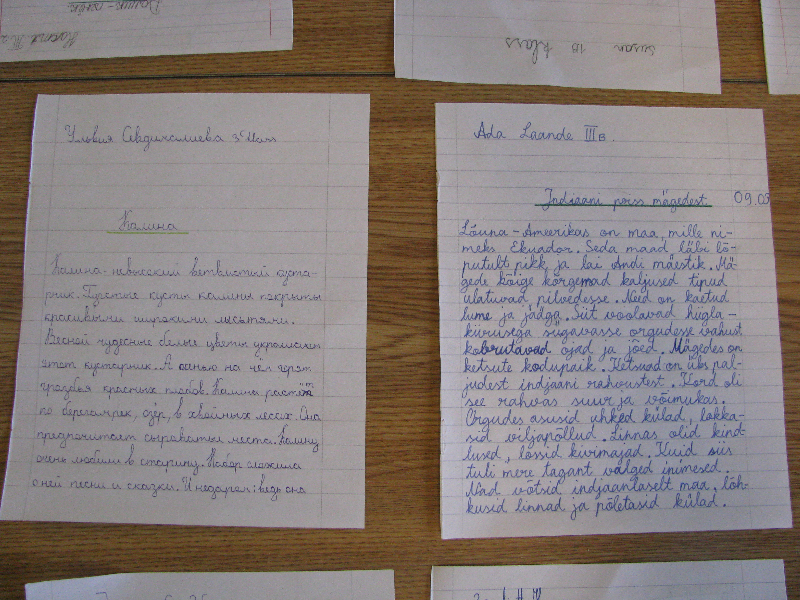 Susan 1B klass
Ульвия 3 класс
Калина
Калина - невысокий ветвистый куста-
рник. Густые кусты калины покрыты
красивыми широкими листьями.
Весной чудесные белые цветы украшают
этот кустарник. А осенью на нём горят
гроздья красных плодов. Калина растёт
по берегам рек, озёр, в хвойных лесах. Она
предпочитает сыроватые места. Калину
очень любили в старину. Народ сложил
о ней песни и сказки. И недаром: ведь она
Ada Laande III B.
Indiaani poiss mägedest. 09.05
Lõuna-Ameerikas on maa, mille ni-
meks Ekuador. Seda maad läbi lõ-
putult pikk ja lai Andi mäestik. Mä-
gede kõige kõrgemad kaljused tipud
ulatuvad pilvedesse. Need on kaetud
lume ja jääga. Siit voolavad hiigla-
kiirusega sügavasse orgudesse vahust
kobrutavad ojad ja jõed. Mägedes on
ketsute kodupaik. Ketsuad on üks pal-
judest indjaani rahvustest. Kord oli
see rahvas suur ja võimukas.
Orgudes asusid uhked külad, lokka-
sid viljapõllud. Linnas olid kind-
lused, lossid kivimajad. Kuid siis
tuli mere tagant valged inimesed.
Nad võtsid indjaanlaselt maa, lõh-
kusid linnad ja põletasid külad.